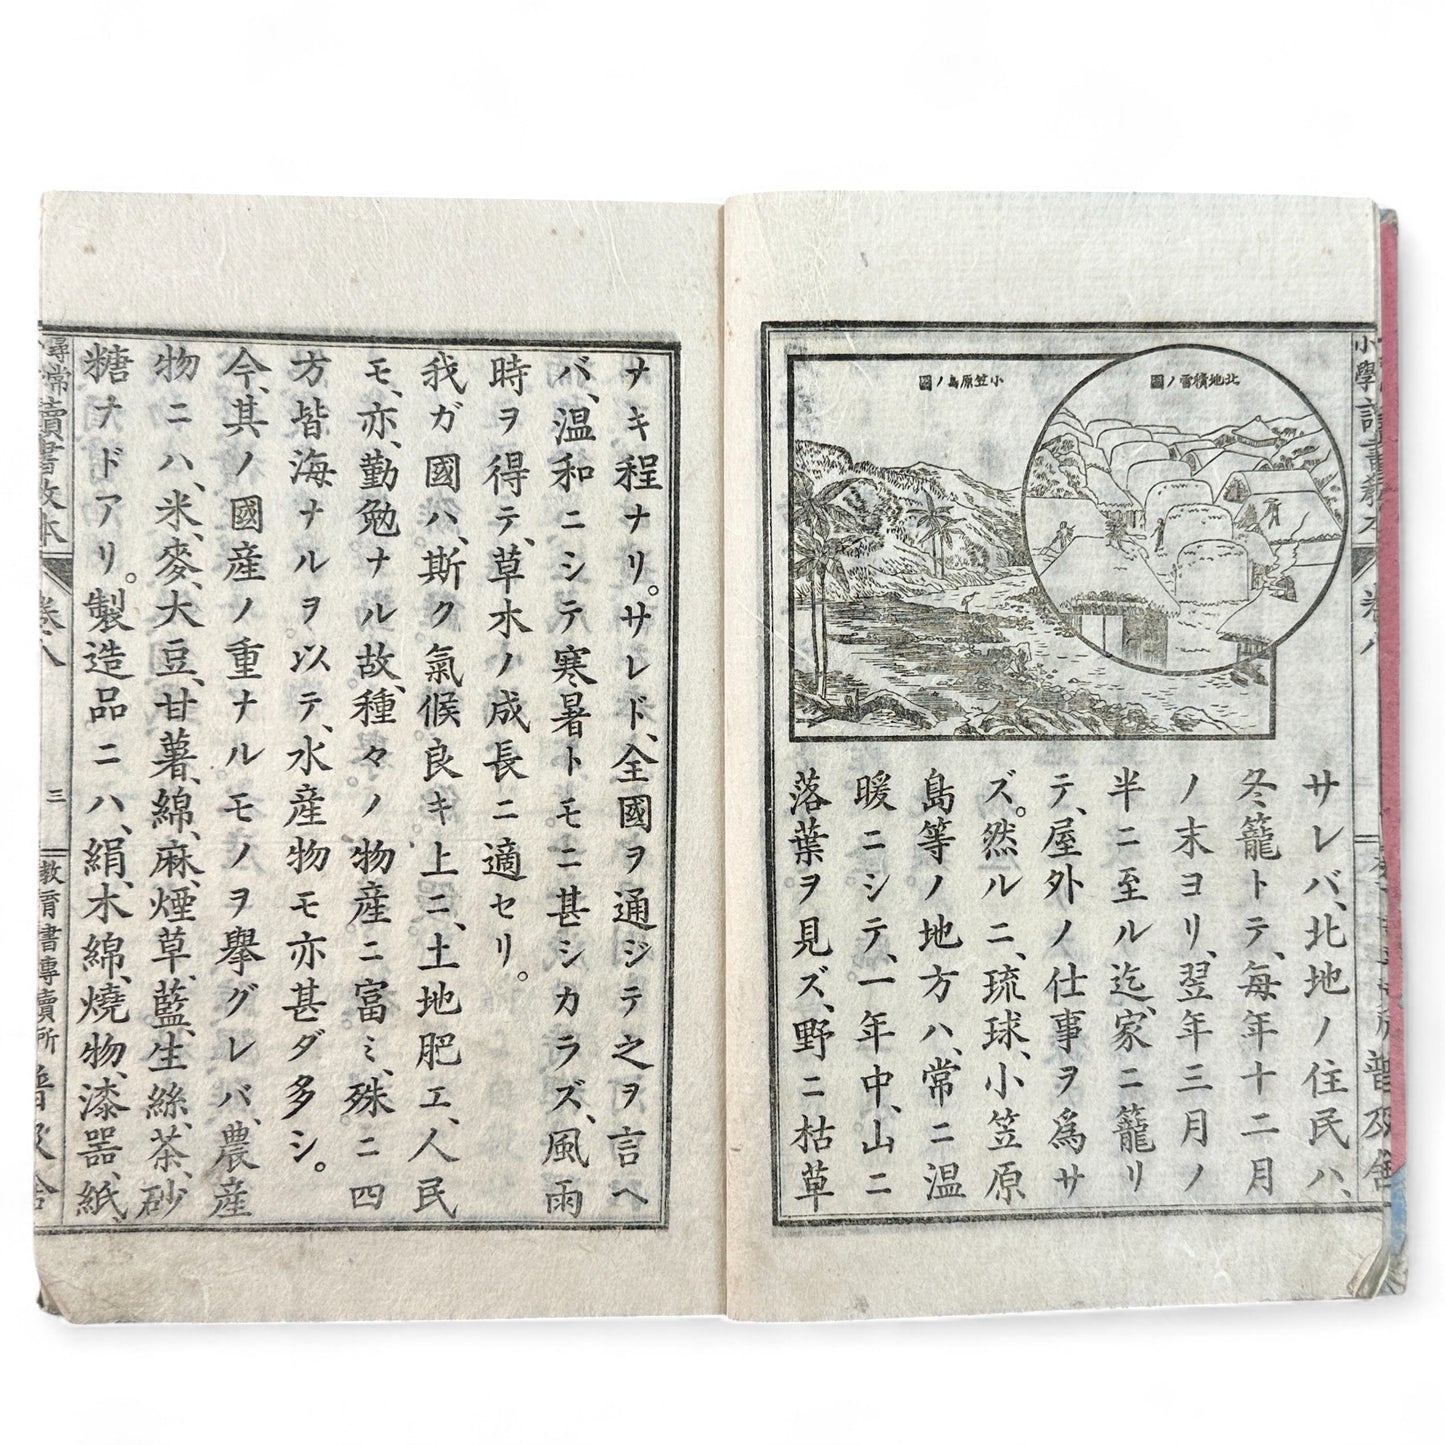 小學讀書教本
卷八
普及舍
北地積雪ノ圖
小笠原島ノ圖
サレバ、北地ノ住民ハ、
冬籠トテ、每年十二月
ノ末ヨリ、翌年三月ノ
半ニ至ル迄、家ニ籠リ
テ、屋外ノ仕事ヲ爲サ
ズ。然ルニ、琉球、小笠原
島等ノ地方ハ、常ニ溫
暖ニシテ、一年中、山ニ
落葉ヲ見ズ、野ニ枯草
ナキ程ナリ。サレド、全國ヲ通ジテ之ヲ言ヘ
バ、溫和ニシテ寒暑トモニ甚シカラズ、風雨
時ヲ得テ、草木ノ成長ニ適セリ。
我ガ國ハ、斯ク氣候良キ上ニ、土地肥エ、人民
モ、亦、勤勉ナル故、種々ノ物產ニ富ミ、殊ニ四
方皆海ナルヲ以テ、水產物モ亦甚ダ多シ。
今、其ノ國產ノ重ナルモノヲ擧グレバ、農產
物ニハ、米、麥、大豆、甘薯、綿、麻、煙草、藍、生絲、茶、砂
糖ナドアリ。製造品ニハ、絹、木綿、燒物、漆器、紙、
尋常讀書教本
卷八
三
教育書專賣所
普及舍